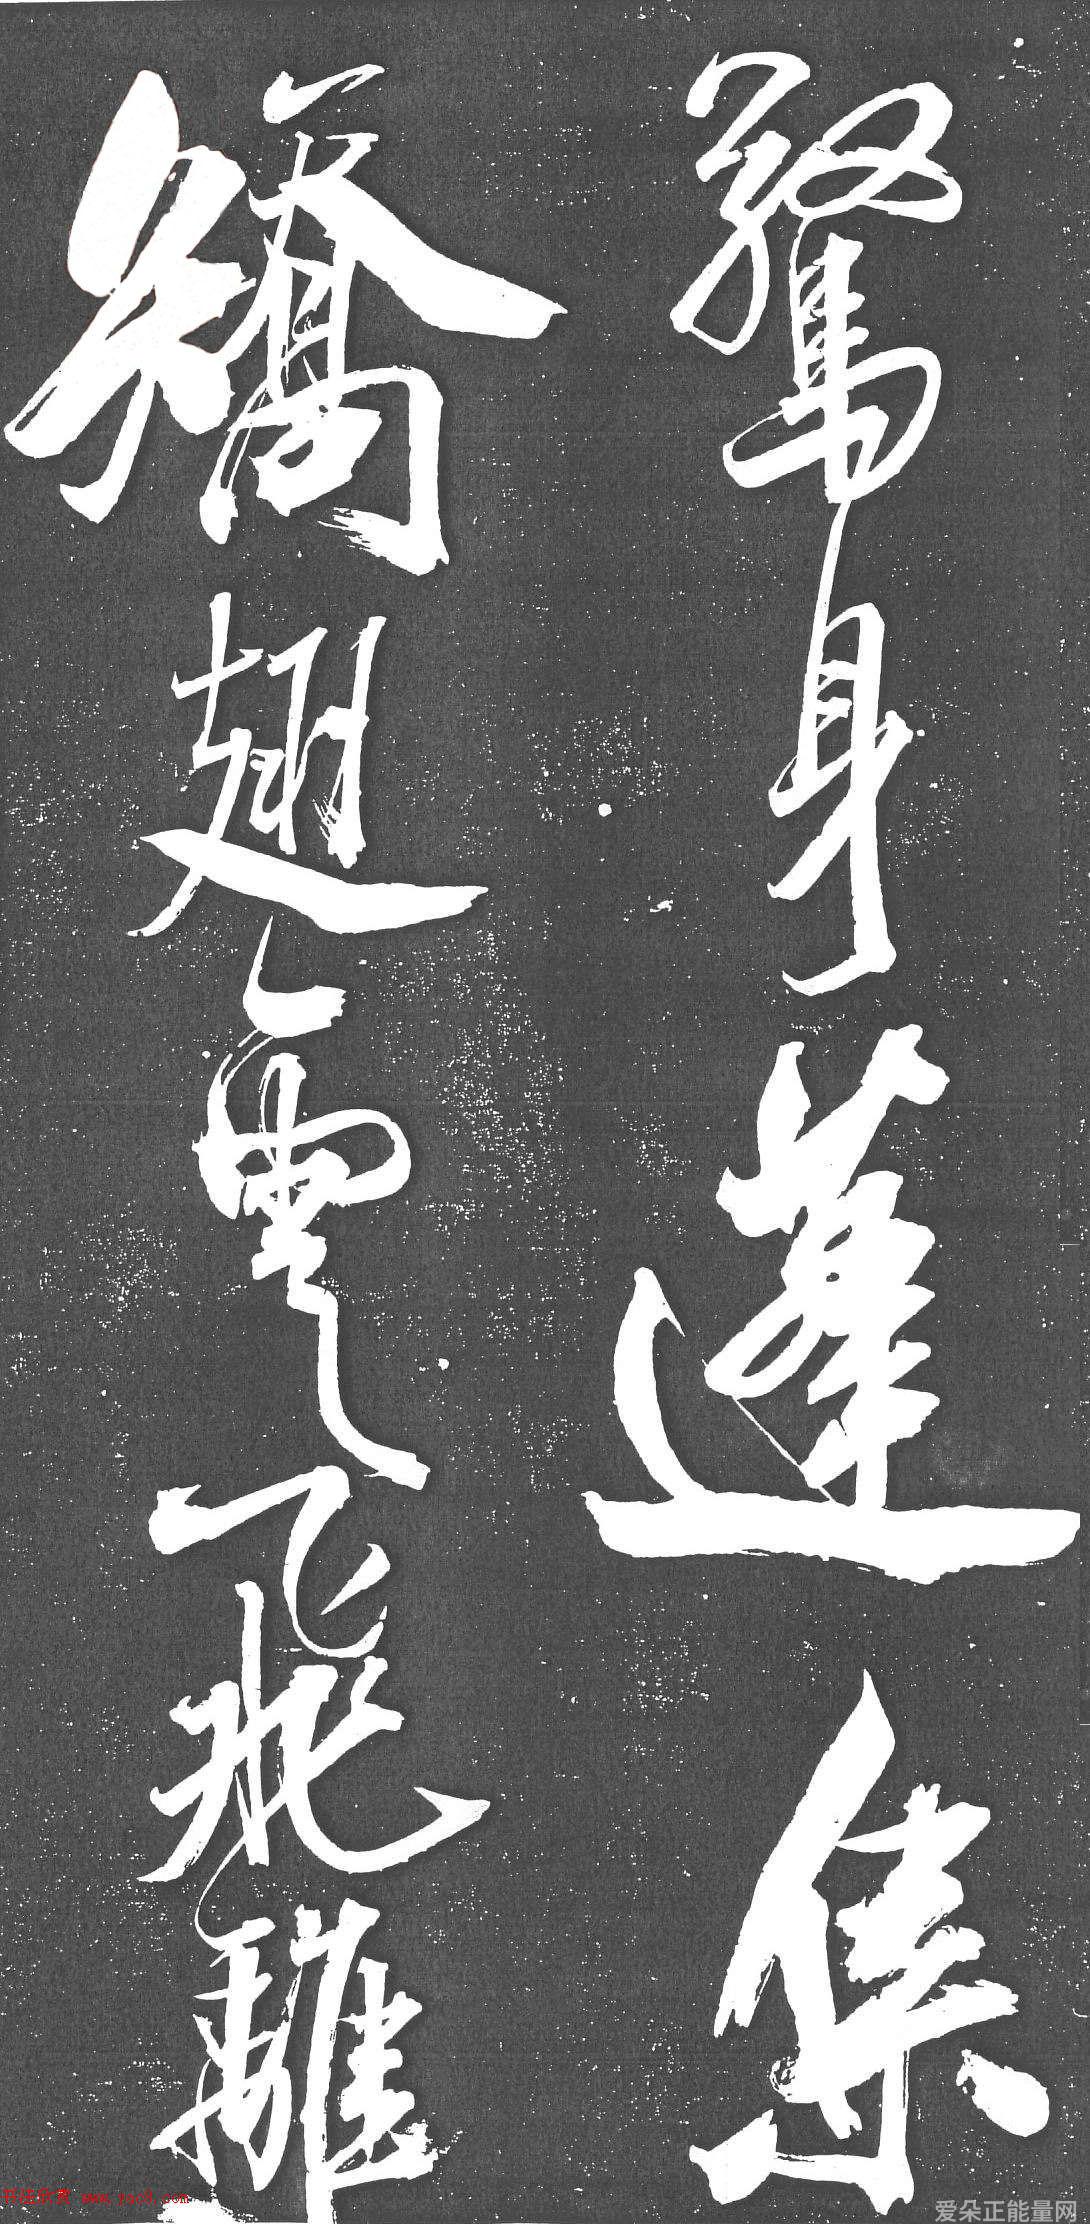 驚身蓬集
矯翅雪飛離
书法欣赏 www.yac8.com
爱朵正能量网